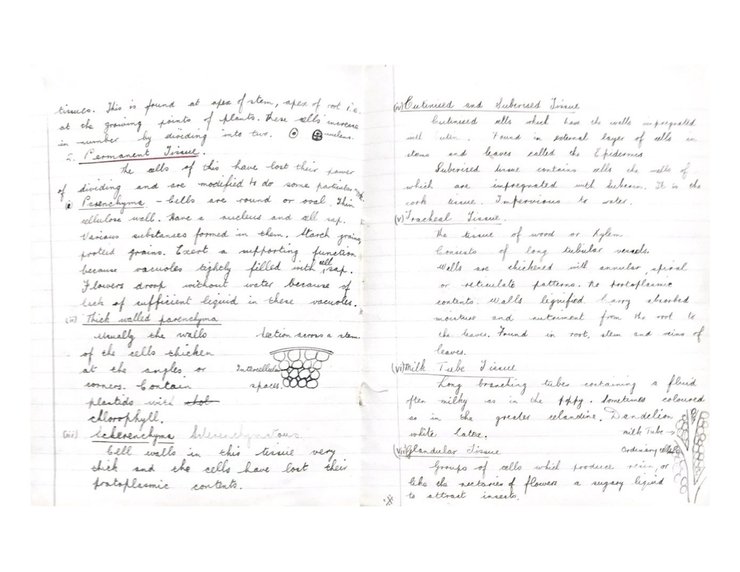 tissues. This is found at apex of stem, apex of root i.e.
at the growing points of plants. These cells increase
in number by dividing into two. nucleus.
2. Permanent Tissue.
The cells of this have lost their power
of dividing and are modified to do some particular
Parenchyma - Cells are round or oval. Thin
cellulose wall. Have a nucleus and cell sap.
Various substances formed in them. Starch grains,
proteid grains. Exert a supporting function
because vacuoles tightly filled with cell sap.
Flowers droop without water because of
lack of sufficient liquid in these vacuoles.
(ii) Thick walled parenchyma
Usually the walls
of the cells thicken
at the angles or
corners. Contain
plastids with
chlorophyll.
Section across a stem.
Intercellular
spaces.
(iii) Sclerenchyma Sclerenchymatous.
Cell walls in this tissue very
thick and the cells have lost their
protoplasmic contents.
(iv) Cutinised and Suberised Tissue
Cutinised cells which have the walls impregnated
with cutin. Found in external layer of cells in
stems and leaves called the Epidermis
Suberised tissue contains cells the walls of
which are impregnated with suberin. It is the
cork tissue. Impervious to water.
(v) Tracheal Tissue.
The tissue of wood or Xylem.
Consists of long tubular vessels.
Walls are thickened with annular, spiral
or reticulate patterns. No protoplasmic
contents. Walls lignified. Carry absorbed
moisture and nutriment from the root to
the leaves. Found in root, stem and veins of
leaves.
(vi) Milk Tube Tissue
Long branching tubes containing a fluid
often milky as in the poppy. Sometimes coloured
as in the greater celandine. Dandelion
white Latex.
Milk Tube →
Ordinary cells
(vii) Glandular Tissue
Groups of cells which produce resin, or
like the nectaries of flowers a sugary liquid
to attract insects.